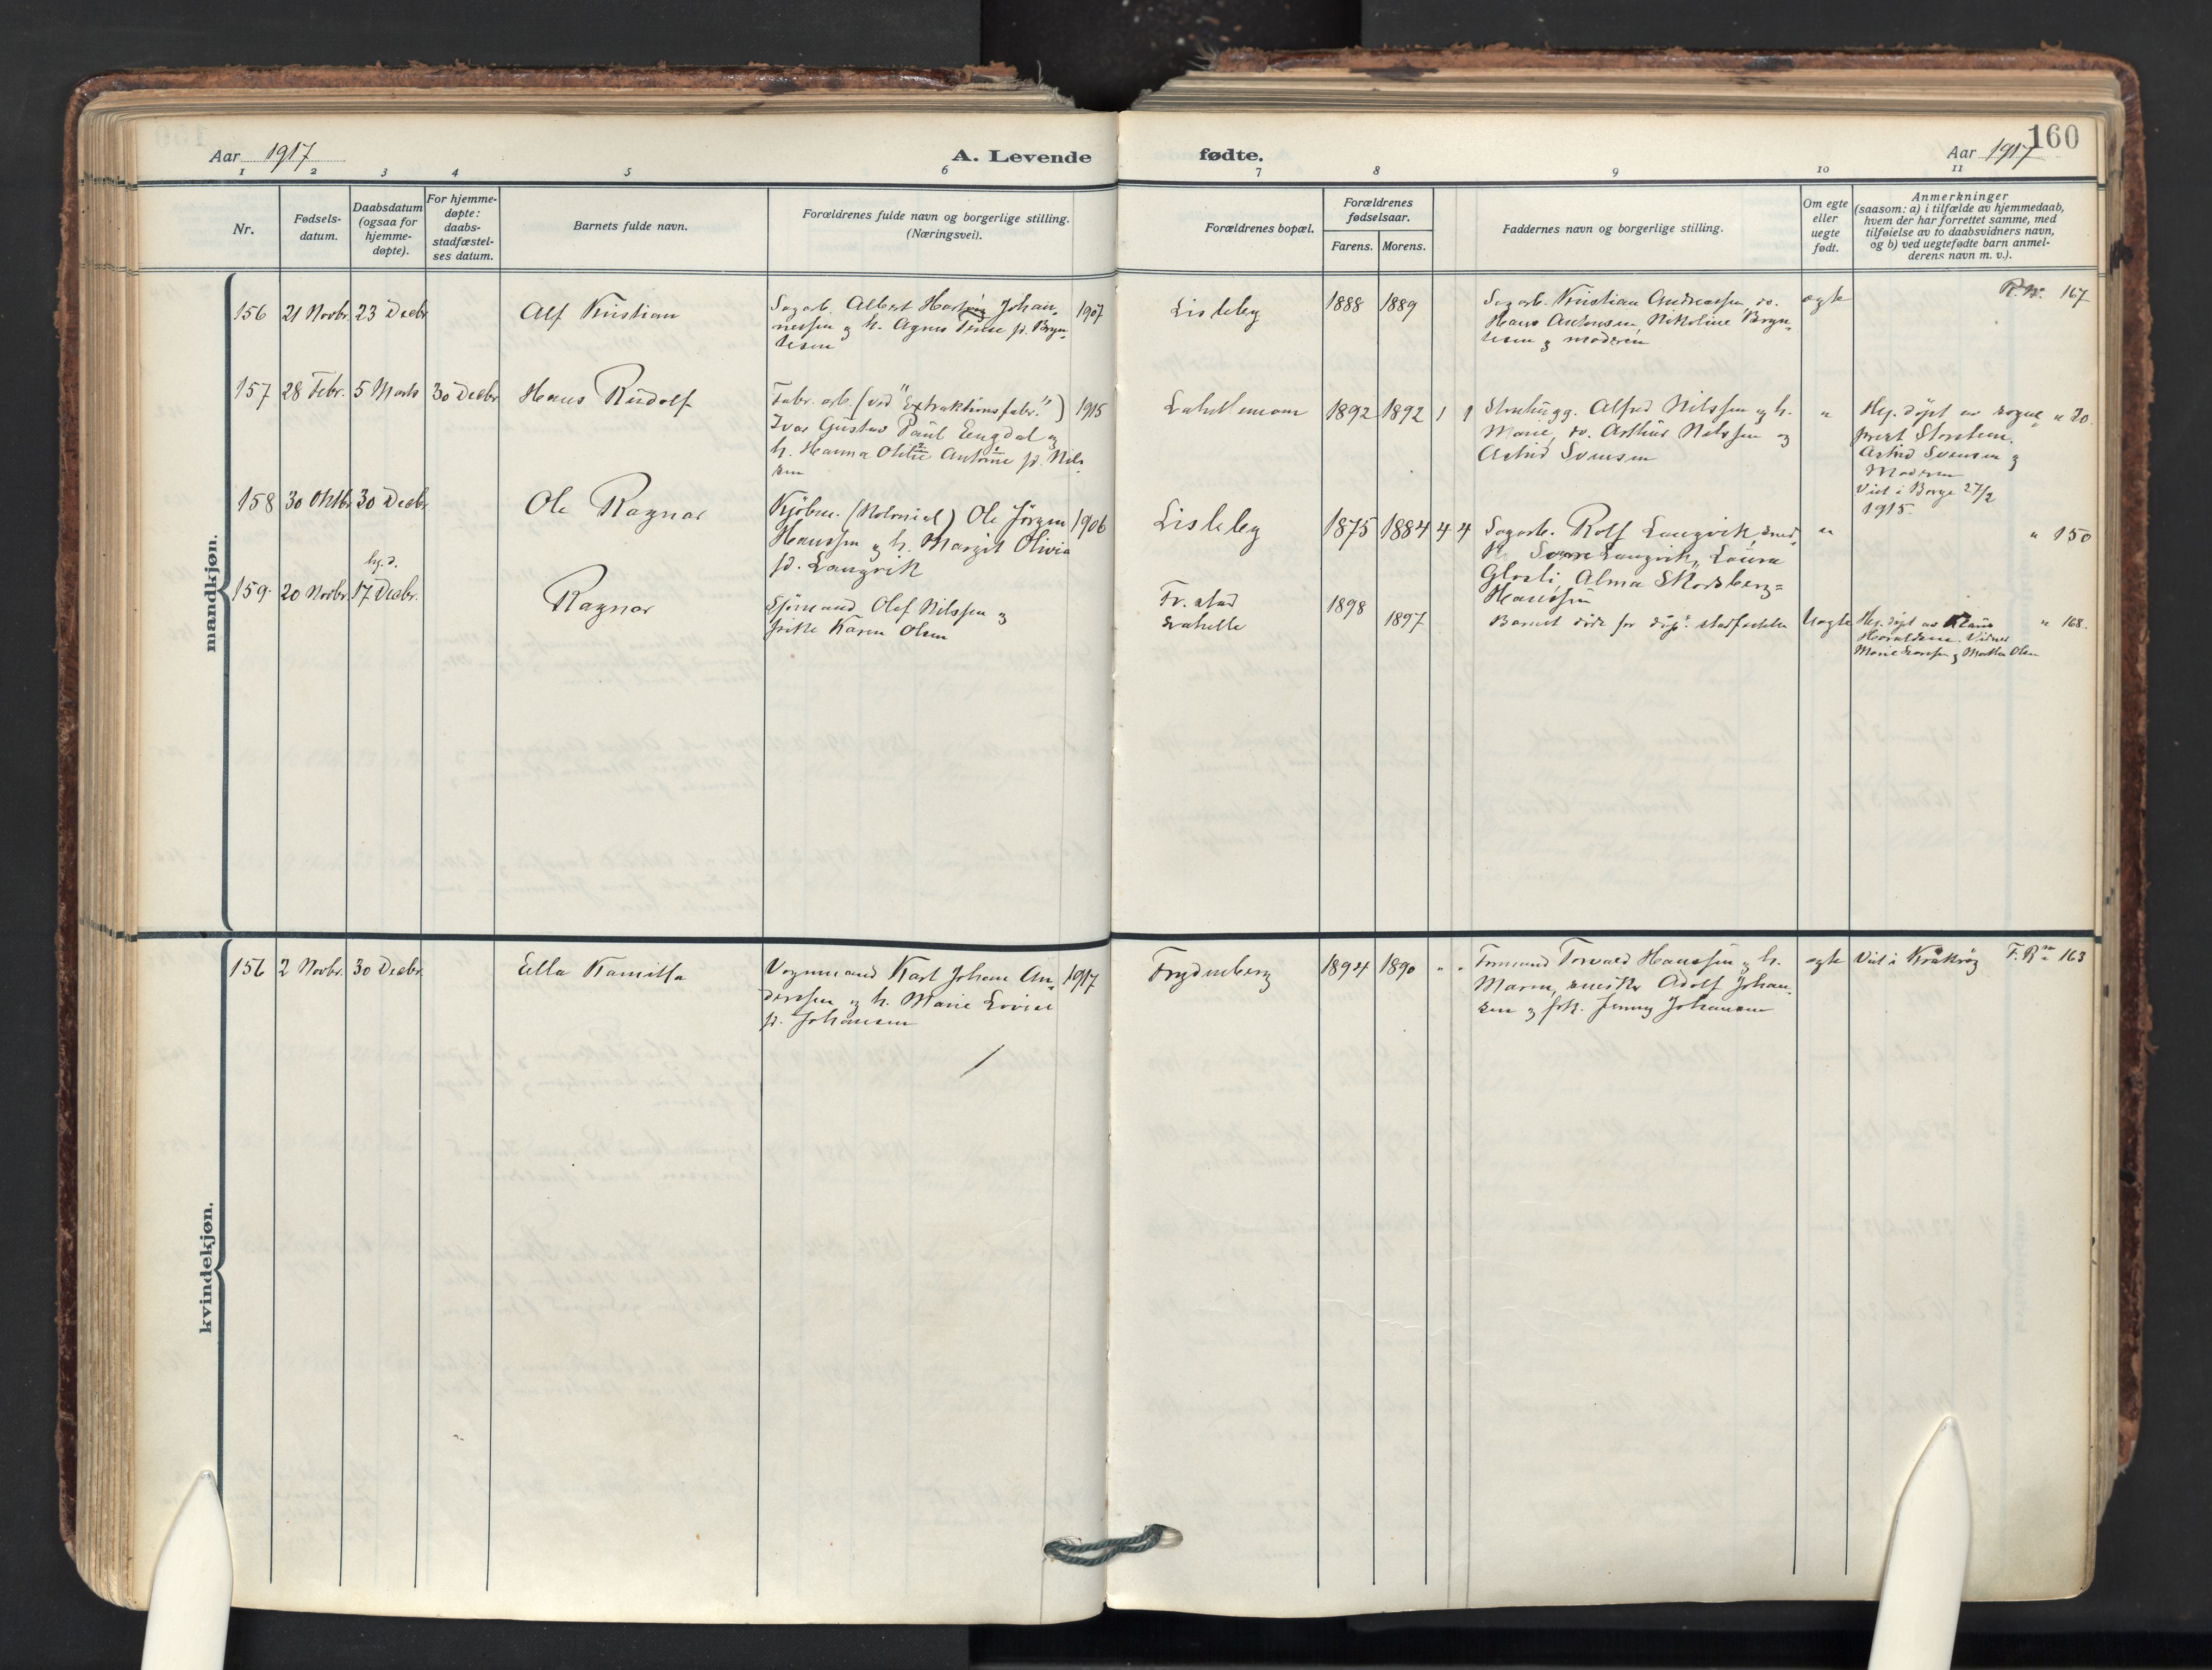 Aar 1917
A. Levende
fødte.
Aar 1917
160
1 2 3 4 5 6 7 8 9 10 11
Nr.
Fødsels-
datum.
Daabsdatum
(ogsaa for
hjemme-
døpte).
For hjemme-
døpte:
daabs-
stadfæstel-
ses datum.
Barnets fulde navn.
Forældrenes fulde navn og borgerlige stilling.
(Næringsvei).
Forældrenes bopæl.
Forældrenes
fødselsaar.
Farens. Morens.
Faddernes navn og borgerlige stilling.
Om egte
eller
uegte
født.
Anmerkninger
(saasom: a) i tilfælde av hjemmedaab,
hvem der har forrettet samme, med
tilføielse av to daabsvidners navn,
og b) ved uegtefødte barn anmel-
derens navn m. v.).
mandkjøn.
156 21 Novbr. 23 Decbr
Alf Kristian
Sagarb. Albert Hartvig Johan-
nessen og h. Agnes f. Bryn-
tesen
1907
Lisleby
1888 1889
Sagarb. Kristian Andreassen, do.
Hans Antonsen, Nikoline Bryn-
tesen og moderen
egte
167
157 28 Febr. 5 Marts 30 Decbr
Hans Rudolf
Fabr. arb. (ved "Extraktionsfabr.")
Ivar Gustav Paul Engdal og
h. Hanna Otilie Antonie f. Nils-
sen
1915
1892 1892 1 1
Stenhugg. Alfred Nilssen og h.
Marie, do. Arthur Nilssen og
Astrid Svensen
"
Hj. døpt av sogne-
prest Storsten.
Astrid Svensen og
Moderen
Viet i Borge 27/2
1915.
" 20.
158 30 Oktbr 30 Decbr
Ole Ragnar
Kjöbm. (Kolonial) Ole Jörgen
Hanssen og h. Margit Olivia
f. Langvik
1906
Lisleby
1875 1884 4 4
Sagarb. Rolf Langvik, smed-
Langvik, Laura
Alma Skodsberg=
Hanssen
"
" 150
159. 20 Novbr. hj. d. 17 Decbr.
Ragnar
Sjömand Olaf Nilssen og
pike Karen Olsen
Fr. stad
1898
1897
Barnet døde før døp. stadfæstelse
Uegte
Hj. døpt av Klaus
Haraldsen. Vidner
Marie og Martha Olsen
" 168.
kvindekjøn.
156 2 Novbr. 30 Decbr.
Ella Kamilla
Vognmand Karl Johan An-
derssen og h. Marie Lovise
f. Johansen
1917
Frydenberg
1894 1890 " "
Formand Torvald Hanssen og h.
Maren, snedker Adolf Johan-
sen og frk. Jenny Johansen
egte
Viet i Kråkerøy
163